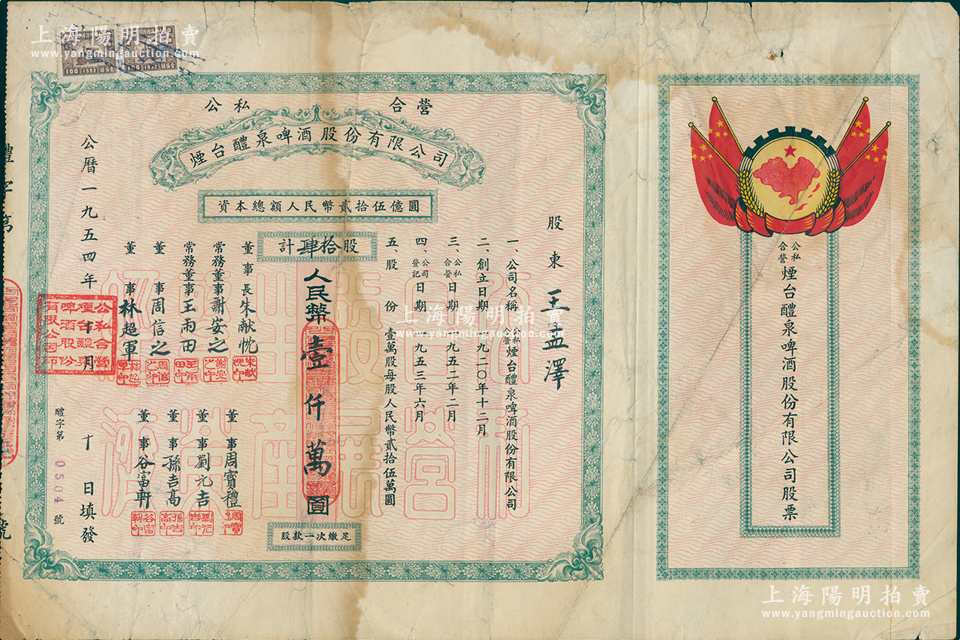 上海陽明拍賣
www.yangmingauction.com
公私合營
煙台醴泉啤酒股份有限公司
資本總額人民幣貳拾伍億圓
計肆拾股
股東 王孟澤
一、公司名稱 公私合營煙台醴泉啤酒股份有限公司
二、創立日期 一九二〇年十二月
三、公私合營日期 一九五二年二月
四、公司登記日期 一九五三年六月
五、股份 壹萬股每股人民幣貳拾伍萬圓
人民幣壹仟萬圓
董事長 朱献忱
常務董事 謝安之
常務董事 王雨田
董事 周信之
董事 林超軍
董事 周寶禮
董事 劉元吉
董事 孫吉髙
董事 谷富軒
股款一次繳足
公曆一九五四年十月十日填發
醴字第0504號
公私合營
煙台醴泉
啤酒股份
有限公司
公私合營煙台醴泉啤酒股份有限公司股票
上海陽明拍賣
www.yangmingauction.com
上海陽明拍賣
www.yangmingauction.com